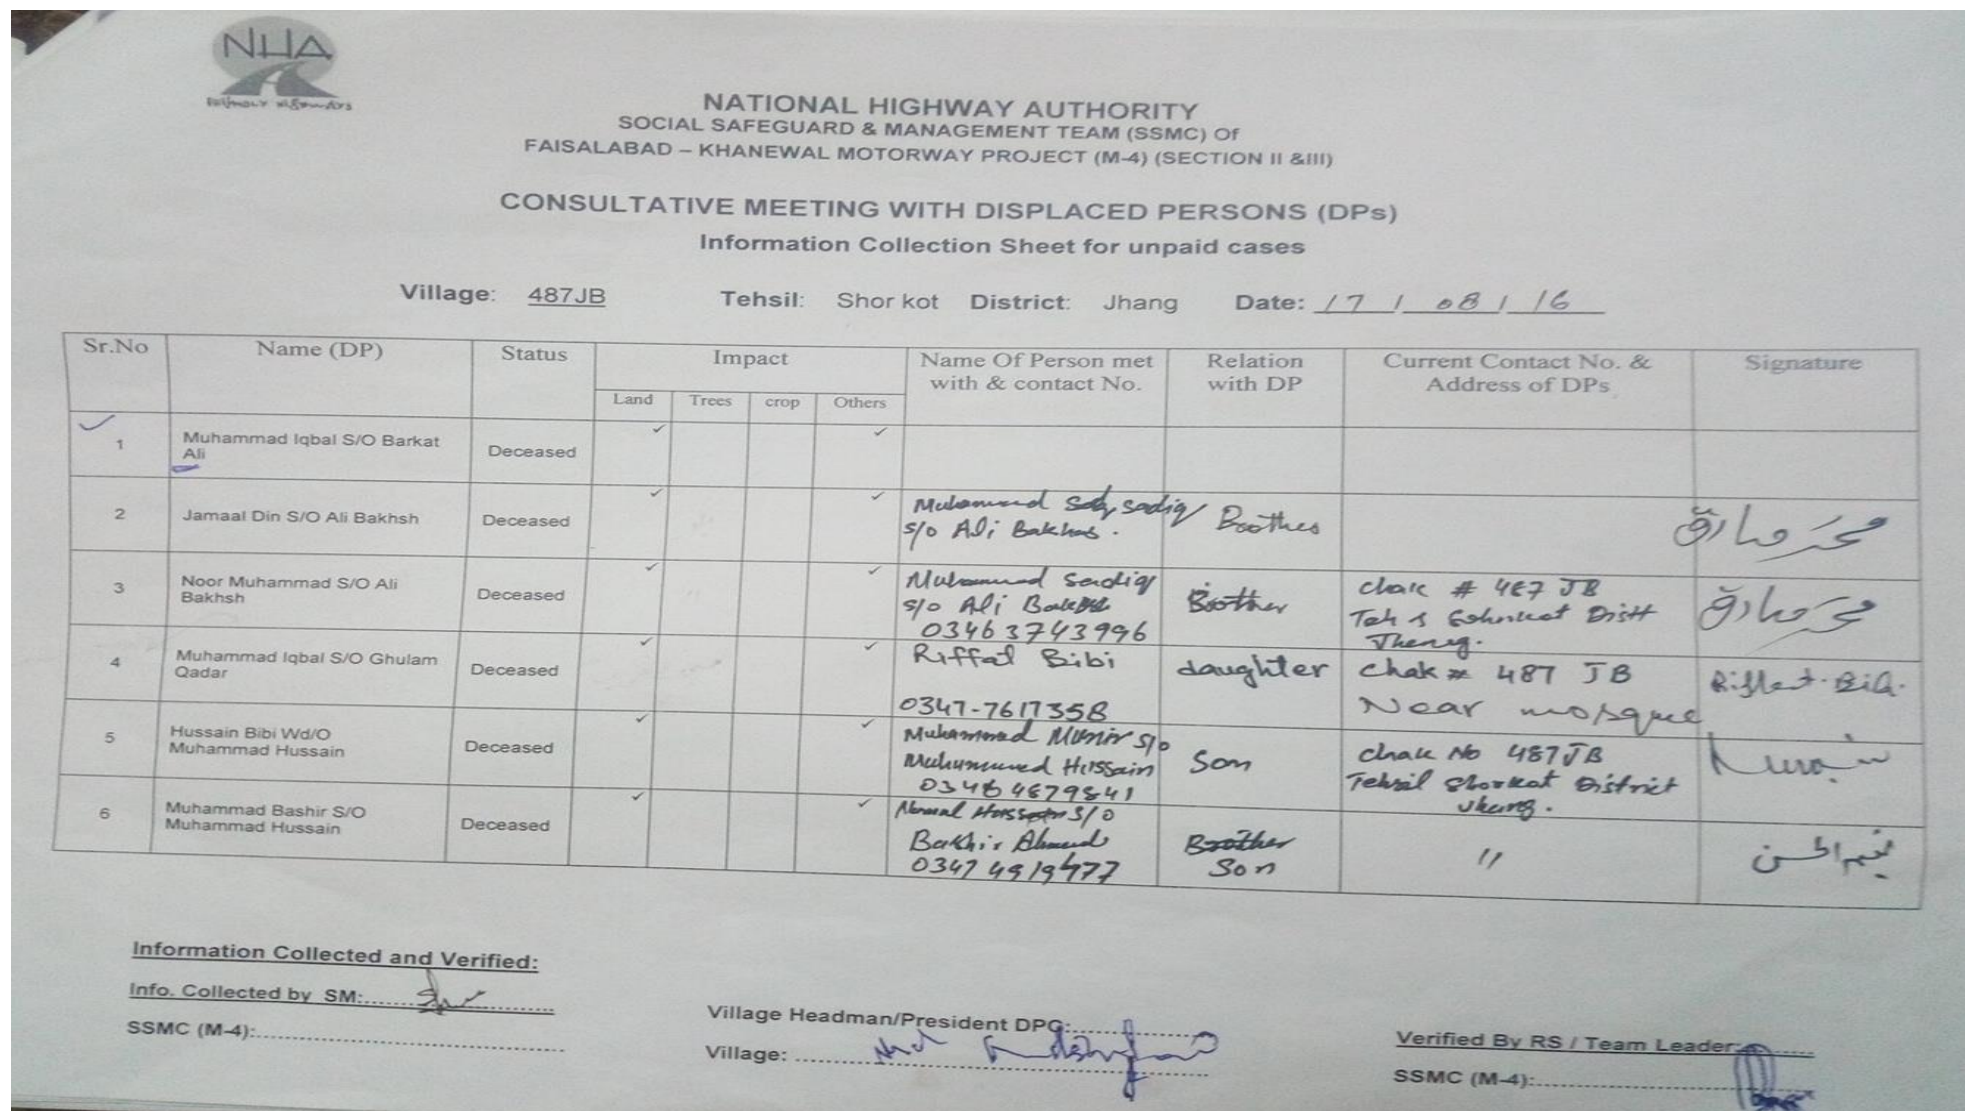 NHA
NATIONAL HIGHWAY AUTHORITY
SOCIAL SAFEGUARD & MANAGEMENT TEAM (SSMC) Of
FAISALABAD – KHANEWAL MOTORWAY PROJECT (M-4) (SECTION II &III)
CONSULTATIVE MEETING WITH DISPLACED PERSONS (DPs)
Information Collection Sheet for unpaid cases
Village: 487JB Tehsil: Shor kot District: Jhang Date: 17 / 08 / 16
Sr.No Name (DP) Status Impact Name Of Person met with & contact No. Relation with DP Current Contact No. & Address of DPs Signature
Land Trees crop Others
1 Muhammad Iqbal S/O Barkat Ali Deceased ✓ ✓
2 Jamaal Din S/O Ali Bakhsh Deceased ✓ ✓ Muhammad sadiq s/o Ali Bakhas. Boothes محمد صادق
3 Noor Muhammad S/O Ali Bakhsh Deceased ✓ ✓ Muhammad Sadiq s/o Ali 03463743996 Boother chak # 487 JB Distt محمد صادق
4 Muhammad Iqbal S/O Ghulam Qadar Deceased ✓ ✓ Riffat Bibi 0347-7617358 daughter chak # 487 JB Near mosque
5 Hussain Bibi Wd/O Muhammad Hussain Deceased ✓ ✓ Muhammad Munir s/o Muhammad Hussain Son chak No 487JB Tehsil Shorkot District
6 Muhammad Bashir S/O Muhammad Hussain Deceased ✓ ✓ S/O 0347 4919477 Brother Son 11
Information Collected and Verified:
Info. Collected by SM:
SSMC (M-4):
Village Headman/President DPC:
Village:
Verified By RS / Team Leader:
SSMC (M-4):